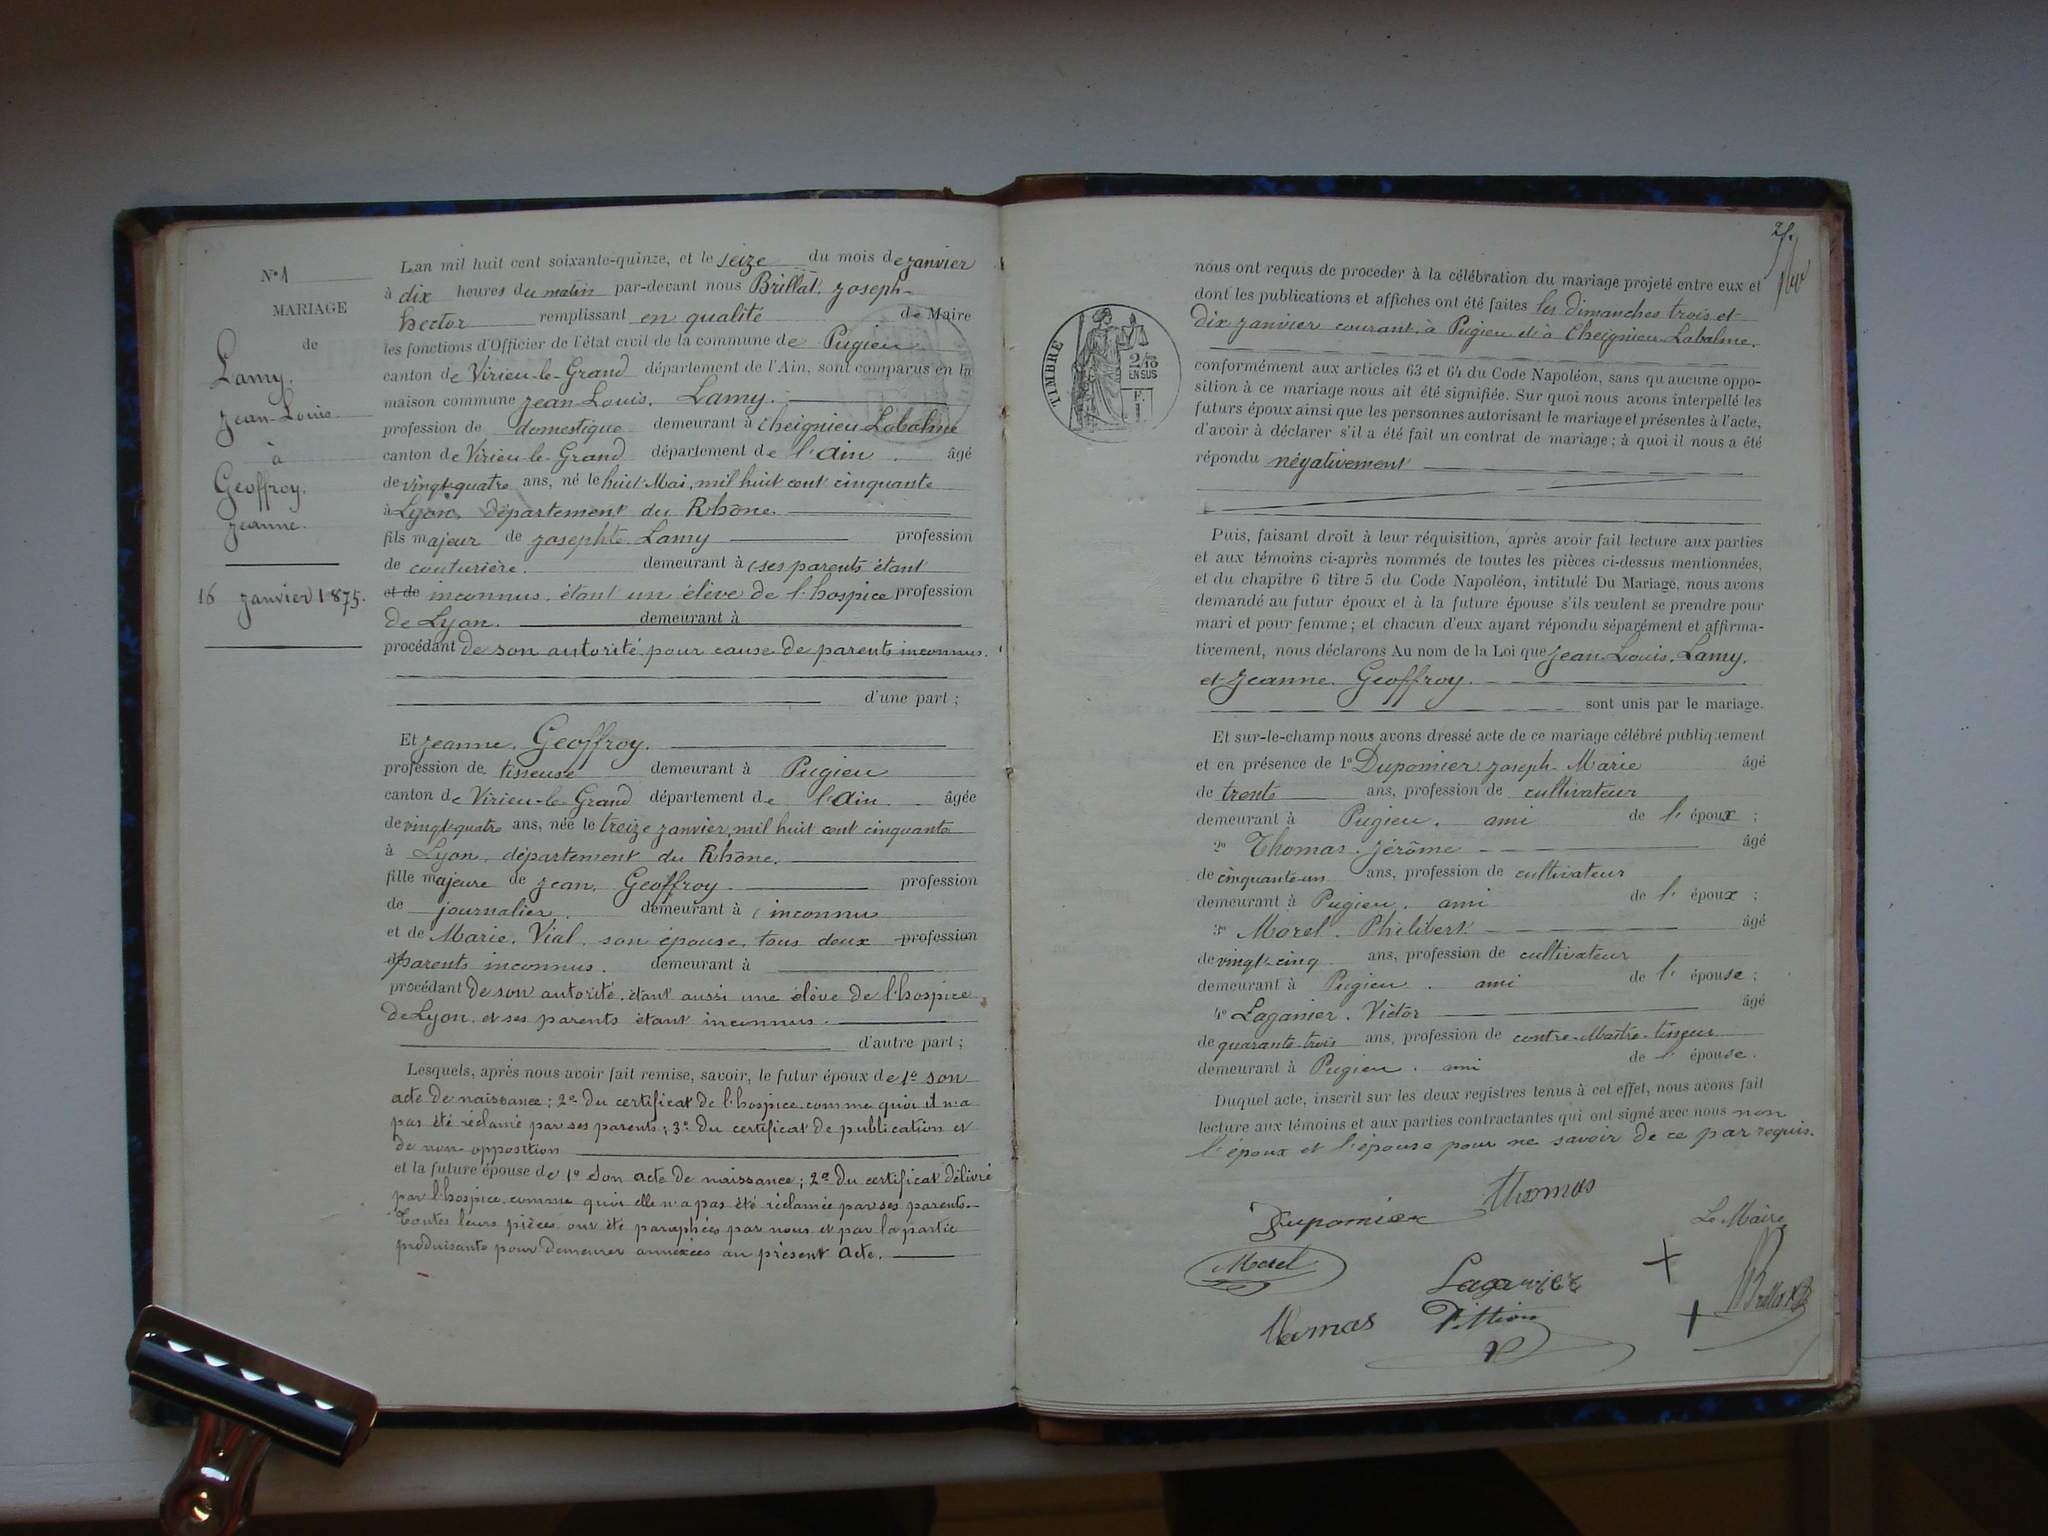 N° 1
MARIAGE
de
Lamy.
Jean-Louis
à
Geoffroy.
Jeanne.
16 janvier 1875.
L'an mil huit cent soixante-quinze, et le seize du mois de janvier
à dix heures du matin par-devant nous Brillat. Joseph-
hector remplissant en qualité de Maire
les fonctions d'Officier de l'état civil de la commune de Pugieu
canton de Virieu-le-Grand département de l'Ain, sont comparus en la
maison commune Jean-Louis. Lamy.
profession de domestique demeurant à Cheignieu-Labalme
canton de Virieu-le-Grand département de l'Ain âgé
de vingt-quatre ans, né le huit Mai, mil huit cent cinquante
à Lyon. département du Rhône.
fils majeur de Josephte Lamy profession
de couturière. demeurant à (ses parents étant
et de inconnus. étant un élève de l'hospice profession
de Lyon. demeurant à
procédant de son autorité pour cause de parents inconnus.
d'une part ;
Et Jeanne. Geoffroy.
profession de tisseuse demeurant à Pugieu
canton de Virieu-le-Grand département de l'Ain âgée
de vingt-quatre ans, née le treize janvier, mil huit cent cinquante
à Lyon, département du Rhône.
fille majeure de Jean. Geoffroy profession
de journalier. demeurant à (inconnu
et de Marie. Vial. son épouse. tous deux profession
parents inconnus. demeurant à
procédant de son autorité. étant aussi une élève de l'hospice
de Lyon. et ses parents étant inconnus.
d'autre part ;
Lesquels, après nous avoir fait remise, savoir, le futur époux de 1° son
acte de naissance ; 2° du certificat de l'hospice. comme quoi il n'a
pas été réclamé par ses parents ; 3° du certificat de publication et
de non opposition
et la future épouse de 1° son acte de naissance ; 2° du certificat délivré
par l'hospice. comme quoi elle n'a pas été réclamée par ses parents.-
Toutes leurs pièces ont été paraphées par nous et par la partie
produisante pour demeurer annexées au présent acte.
2/.
TIMBRE
2/10
EN SUS
nous ont requis de proceder à la célébration du mariage projeté entre eux et
dont les publications et affiches ont été faites les dimanches trois et
dix janvier courant. à Pugieu et à Cheignieu-Labalme.
conformément aux articles 63 et 64 du Code Napoléon, sans qu'aucune oppo-
sition à ce mariage nous ait été signifiée. Sur quoi nous avons interpellé les
futurs époux ainsi que les personnes autorisant le mariage et présentes à l'acte,
d'avoir à déclarer s'il a été fait un contrat de mariage ; à quoi il nous a été
répondu négativement
Puis, faisant droit à leur réquisition, après avoir fait lecture aux parties
et aux témoins ci-après nommés de toutes les pièces ci-dessus mentionnées,
et du chapitre 6 titre 5 du Code Napoléon, intitulé Du Mariage, nous avons
demandé au futur époux et à la future épouse s'ils veulent se prendre pour
mari et pour femme ; et chacun d'eux ayant répondu séparément et affirma-
tivement, nous déclarons Au nom de la Loi que Jean. Louis. Lamy.
et Jeanne. Geoffroy.
sont unis par le mariage.
Et sur-le-champ nous avons dressé acte de ce mariage célébré publiquement
et en présence de 1° Dupomier Joseph-Marie âgé
de trente ans, profession de cultivateur
demeurant à Pugieu. ami de l' époux ;
2° Thomas. Jérôme âgé
de cinquante-un ans, profession de cultivateur
demeurant à Pugieu. ami de l' époux ;
3° Morel. Philibert âgé
de vingt-cinq ans, profession de cultivateur
demeurant à Pugieu. ami de l' épouse ;
4° Laganier. Victor âgé
de quarante-trois ans, profession de contre-Maître-tisseur
demeurant à Pugieu. ami de l' épouse.
Duquel acte, inscrit sur les deux registres tenus à cet effet, nous avons fait
lecture aux témoins et aux parties contractantes qui ont signé avec nous non
l'époux et l'épouse pour ne savoir de ce par requis.
Dupomier Thomas
Le Maire
Morel
Laganier
Brillat
Thomas Pittion